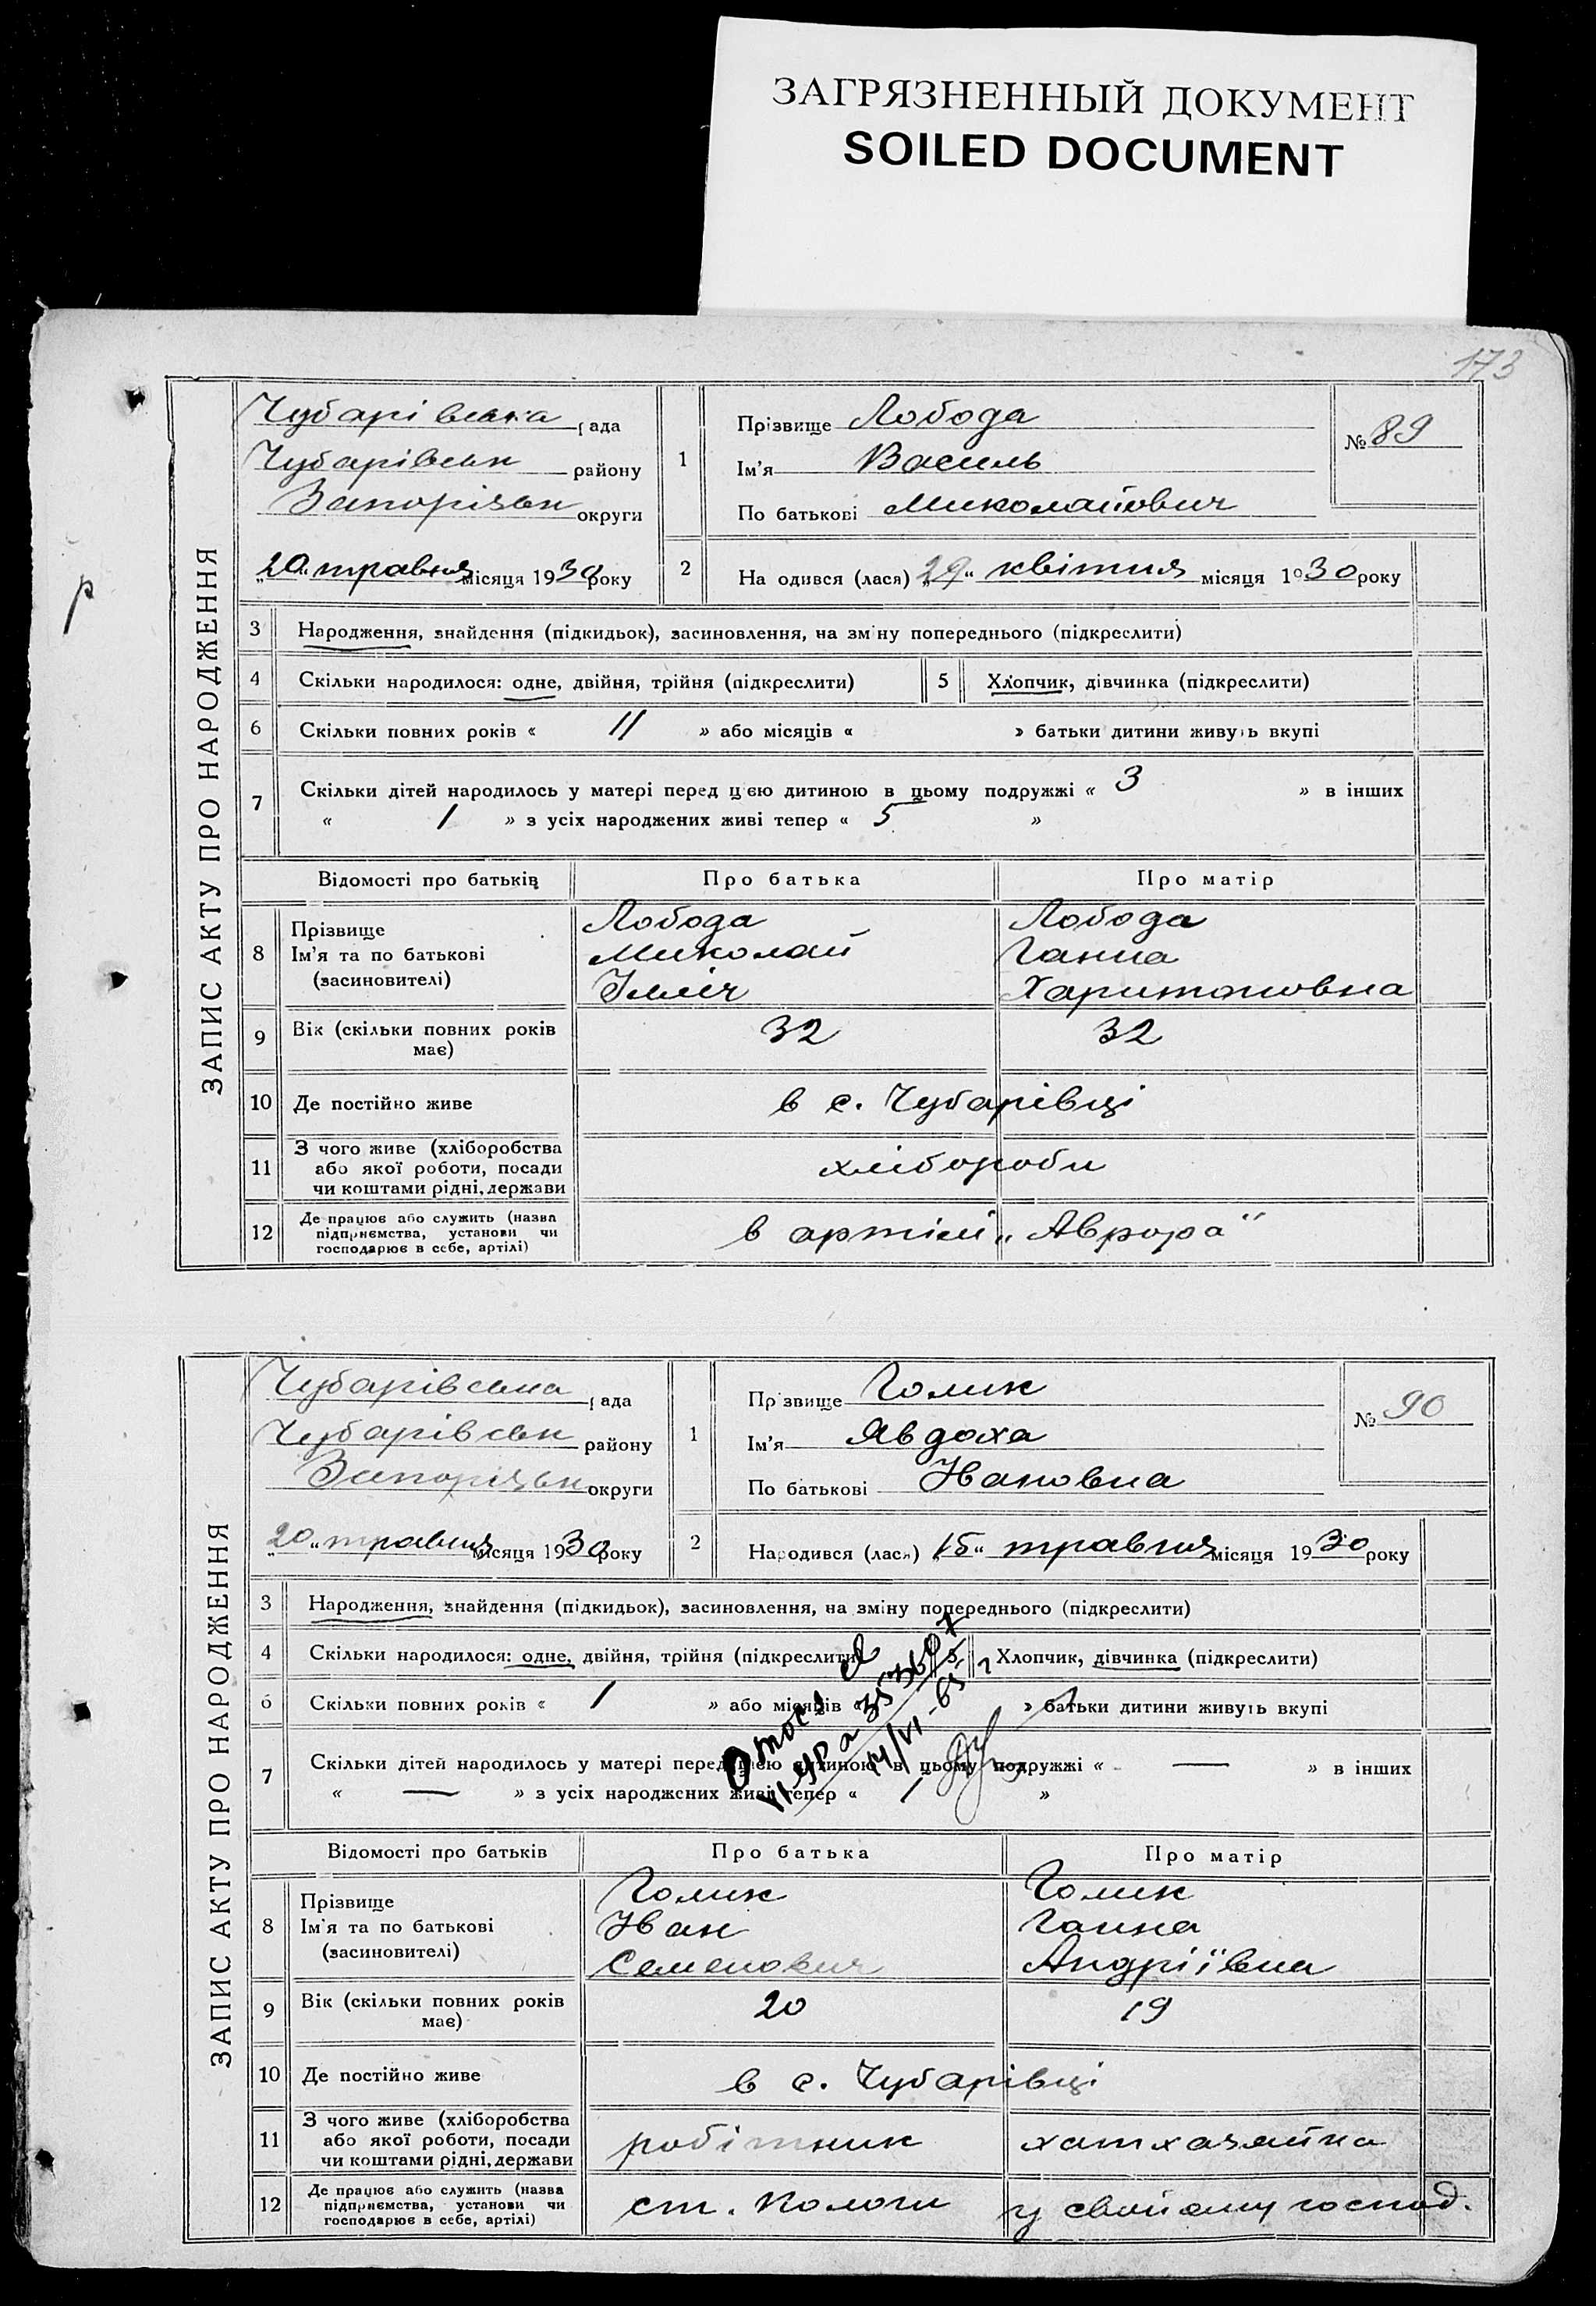 ЗАГРЯЗНЕННЫЙ ДОКУМЕНТ
SOILED DOCUMENT
173
р
ЗАПИС АКТУ ПРО НАРОДЖЕННЯ
Чубарівська рада
Чубарівськ району
Запорізьк округи
„20“ травня місяця 1930 року
1 Прізвище Лобода
Ім’я Василь
По батькові Миколайович
№ 89
2 На одився (лася) „29“ квітня місяця 1930 року
3 Народження, знайдення (підкидьок), засиновлення, на зміну попереднього (підкреслити)
4 Скільки народилося: одне, двійня, трійня (підкреслити) 5 Хлопчик, дівчинка (підкреслити)
6 Скільки повних років « 11 » або місяців « » батьки дитини живуть вкупі
7 Скільки дітей народилось у матері перед цією дитиною в цьому подружжі « 3 » в інших
« 1 » з усіх народжених живі тепер « 5 »
Відомості про батьків Про батька Про матір
8 Прізвище Лобода Лобода
Ім’я та по батькові Миколай Ганна
(засиновителі) Ілліч Харитоновна
9 Вік (скільки повних років має) 32 32
10 Де постійно живе в с. Чубарівці
11 З чого живе (хліборобства
або якої роботи, посади хлібороби
чи коштами рідні, держави
12 Де працює або служить (назва
підприємства, установи чи в артілі „Аврора“
господарює в себе, артілі)
ЗАПИС АКТУ ПРО НАРОДЖЕННЯ
Чубарівська рада
Чубарівськ району
Запорізьк округи
„20“ травня місяця 1930 року
1 Прізвище Голик
Ім’я Явдоха
По батькові Івановна
№ 90
2 Народився (лася) „15“ травня місяця 1930 року
3 Народження, знайдення (підкидьок), засиновлення, на зміну попереднього (підкреслити)
4 Скільки народилося: одне, двійня, трійня (підкреслити) 5 Хлопчик, дівчинка (підкреслити)
6 Скільки повних років « 1 » або місяців « » батьки дитини живуть вкупі
7 Скільки дітей народилось у матері перед цією дитиною в цьому подружжі « — » в інших
« — » з усіх народжених живі тепер « 1 »
14/VI-65 г
Відомості про батьків Про батька Про матір
8 Прізвище Голик Голик
Ім’я та по батькові Іван Ганна
(засиновителі) Семенович Андріївна
9 Вік (скільки повних років має) 20 19
10 Де постійно живе в с. Чубарівці
11 З чого живе (хліборобства
або якої роботи, посади робітник хатхазяйка
чи коштами рідні, держави
12 Де працює або служить (назва
підприємства, установи чи ст. Пологи у свойому господ.
господарює в себе, артілі)